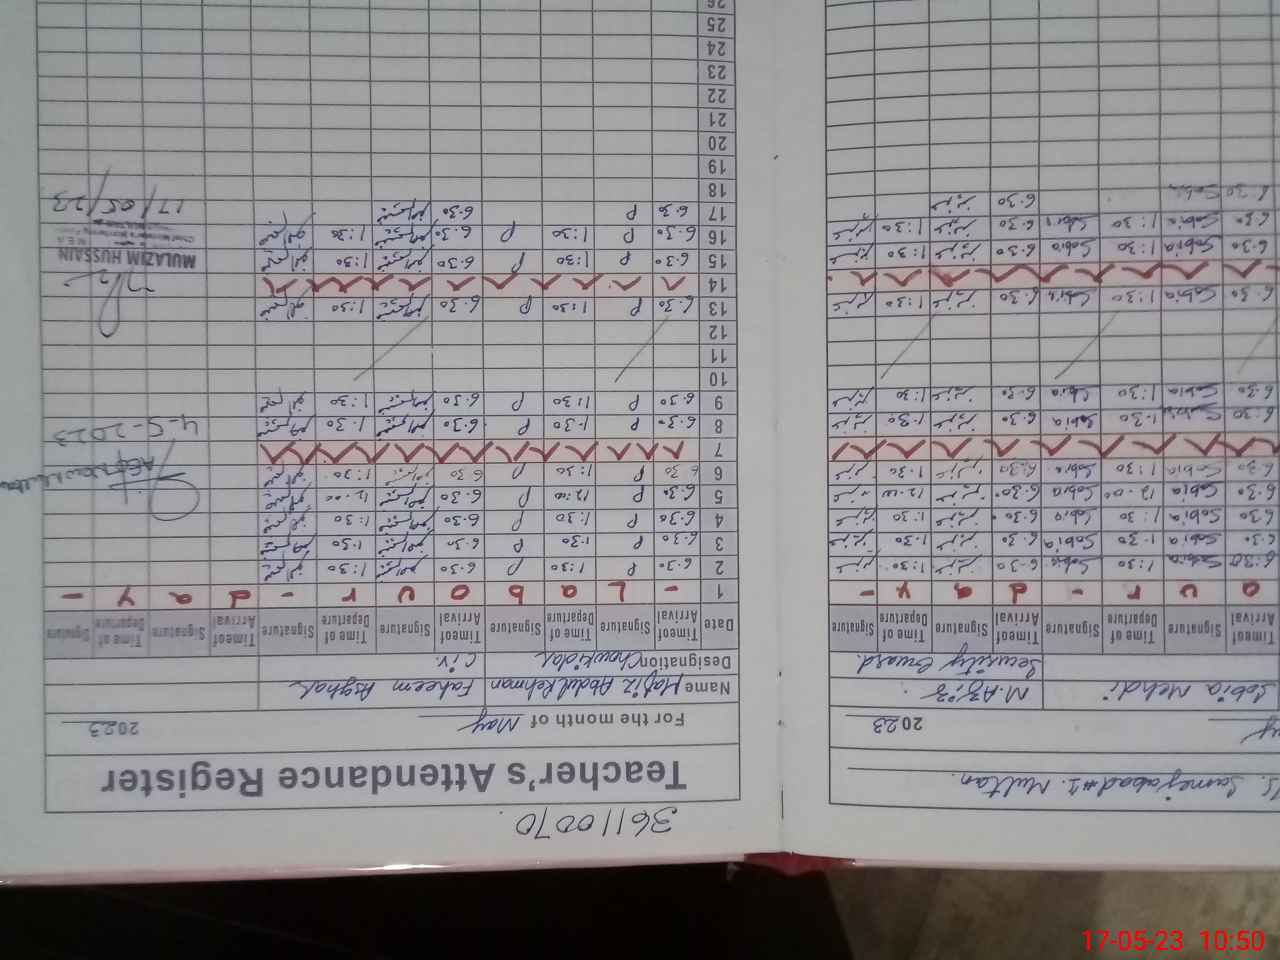 Sameejabad #1. Multan.
2023
Sobia Mehdi M. Aziz
Security Guard
Time of Arrival Signature Time of Departure Signature Time of Arrival Signature Time of Departure Signature
o u r - d a y -
6:30 Sobia 1:30 Sobia 6:30 عزیز 1:30 عزیز
6:30 Sobia 1:30 Sobia 6:30 عزیز 1:30 عزیز
6:30 Sobia 1:30 Sobia 6:30 عزیز 1:30 عزیز
6:30 Sobia 12:00 Sobia 6:30 عزیز 12:00 عزیز
6:30 Sobia 1:30 Sobia 6:30 عزیز 1:30 عزیز
6:30 Sobia 1:30 Sobia 6:30 عزیز 1:30 عزیز
6:30 Sobia 1:30 Sobia 6:30 عزیز 1:30 عزیز
6:30 Sobia 1:30 Sobia 6:30 عزیز 1:30 عزیز
6:30 Sobia 1:30 Sobia 6:30 عزیز 1:30 عزیز
6:30 Sobia 1:30 Sobia 6:30 عزیز 1:30 عزیز
6:30 عزیز
6:30 Sobia
36110070
Teacher's Attendance Register
For the month of May 2023
Name Hafiz Abdul Rehman Faheem Asghar
Designation Chowkidar C.iv.
Date Time of Arrival Signature Time of Departure Signature Time of Arrival Signature Time of Departure Signature Time of Arrival Signature Time of Departure Signature
1 - L a b o u r - d a y -
2 6:30 P 1:30 P 6:30 1:30
3 6:30 P 1:30 P 6:30 1:30
4 6:30 P 1:30 P 6:30 1:30
5 6:30 P 12:00 P 6:30 12:00
6 6:30 P 1:30 P 6:30 1:30
7
8 6:30 P 1:30 P 6:30 1:30
4-5-2023
9 6:30 P 1:30 P 6:30 1:30
10
11
12
13 6:30 P 1:30 P 6:30 1:30
14
15 6:30 P 1:30 P 6:30 1:30
MULAZIM HUSSAIN
M.E.A
16 6:30 P 1:30 P 6:30 1:30
17 6:30 P 6:30
17/05/23
18
19
20
21
22
23
24
25
26
17-05-23 10:50